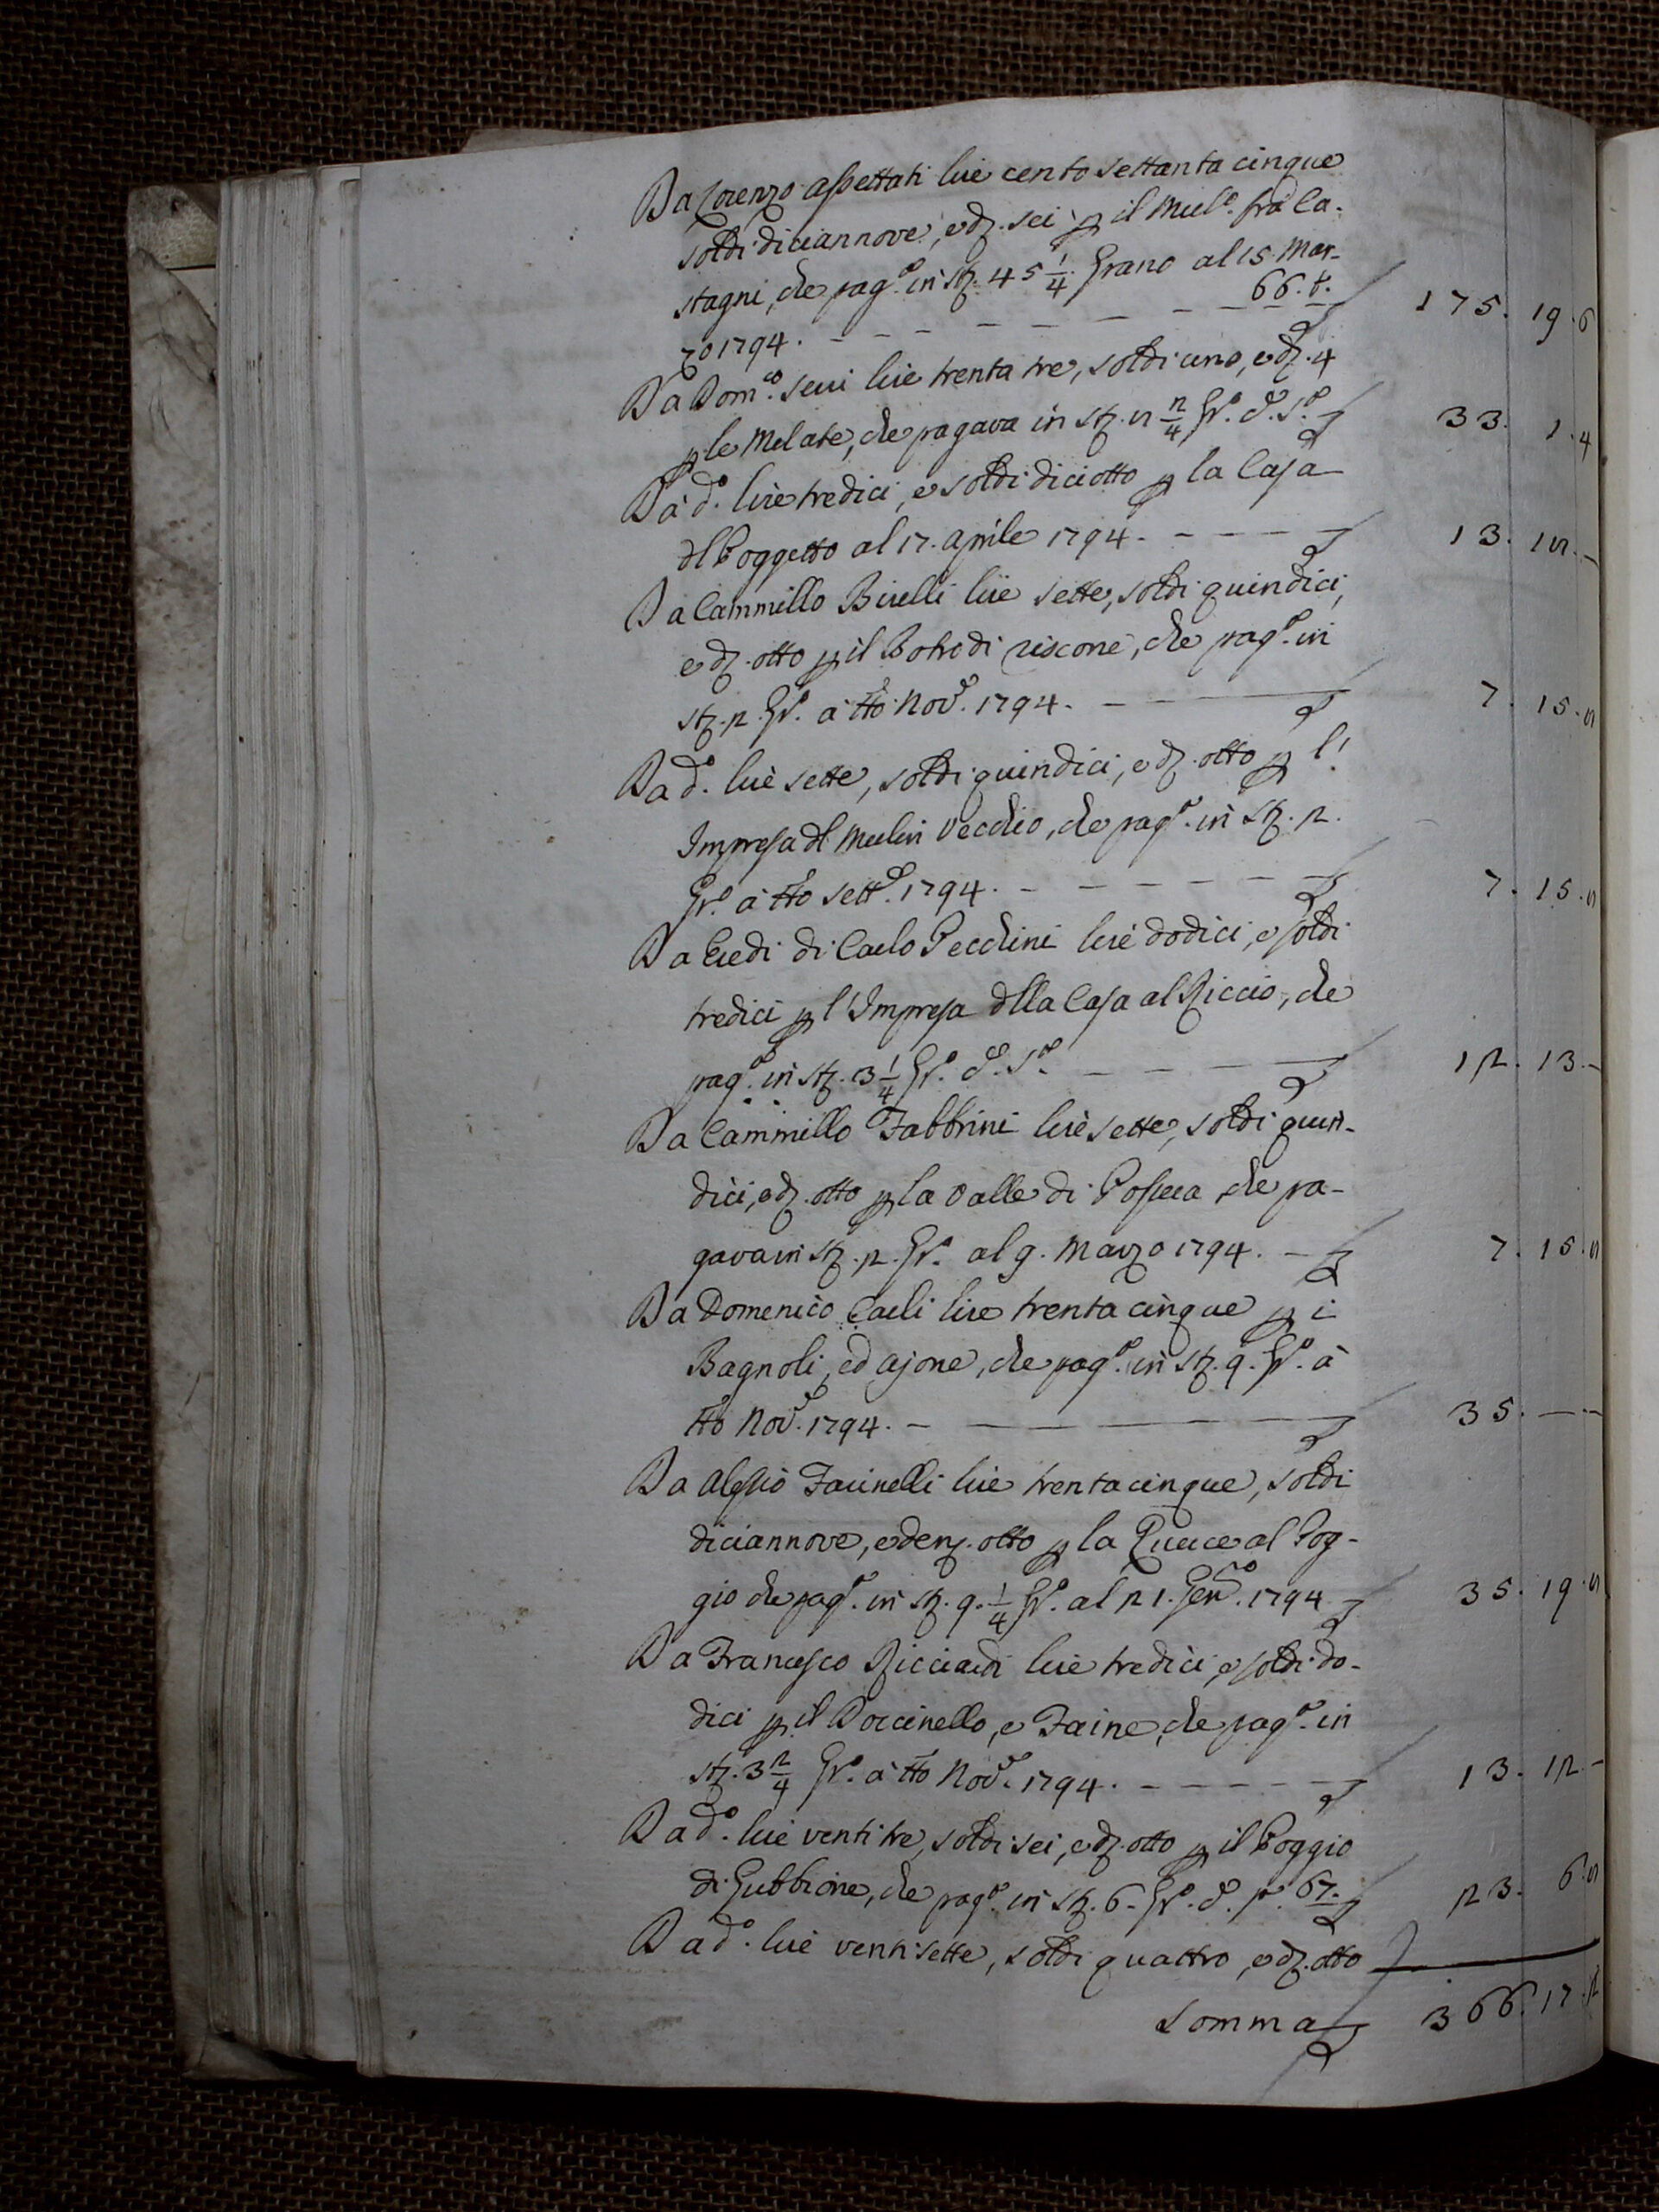 Da Lorenzo Aspettati lire cento settanta cinque
soldi diciannove, e dẓ. sei p il Mul.º fra Ca-
stagni, che pag.ª in stẓ. 45 1/4 Grano al 15 Mar-
zo 1794. - - - - - - - 66. t. 175. 19. 6
Da Dom.co Seri lire trenta tre, soldi uno, e dẓ. 4
p le Melate, che pagava in stẓ. 8 2/4 Gr.º d.º S.º 33. 1. 4
Da d.º lire tredici, e soldi diciotto p la Casa
dl Poggetto al 17. Aprile 1794. - - - - 13. 18. -
Da Cammillo Birelli lire sette, soldi quindici,
e dẓ. otto p il Botro di riscone, che pag.ª in
stẓ. 2. Gr.º à tto Nov.e 1794. - - 7. 15. 8
Da d.º lire sette, soldi quindici, e dẓ. otto p l'
Impresa dl Mulin Vecchio, che pag.ª in stẓ. 2.
Gr.º à tto Sett.e 1794. - - - - - - 7. 15. 8
Da Eredi di Carlo Pecchini lire dodici, e soldi
tredici p l'Impresa dlla Casa al Riccio, che
pag.ª in stẓ. 3 1/4 Gr.º d.º S.º - - - - 12. 13. -
Da Cammillo Fabbrini lire sette, soldi quin-
dici, e dẓ. otto p la Valle di che pa-
gava in stẓ. 2. Gr.º al 9. Marzo 1794. - 7. 15. 8
Da Domenico Carli lire trenta cinque p i
Bagnoli, ed Ajone, che pag.ª in stẓ. 9. Gr.º à
tto Nov.e 1794. - - - - - - 35. - -
Da Alessio Farinelli lire trenta cinque, soldi
diciannove, e denẓ. otto p la Querce al Pog-
gio che pag.ª in stẓ. 9. 1/4 Gr.º al 21. Gen.ro 1794 35. 19. 8
Da Francesco Ricciardi lire tredici, e soldi do-
dici p il Porcinello, e Faine, che pag.ª in
stẓ. 3 2/4 Gr.º à tto Nov.e 1794. - - - - - 13. 12. -
Da d.º lire venti tre, soldi sei, e dẓ. otto p il Poggio
di Gubbione, che pag.ª in stẓ. 6. Gr.º d.º 67. 23. 6. 8
Da d.º lire ventisette, soldi quattro, e dẓ. otto
Somma 366. 17. 2